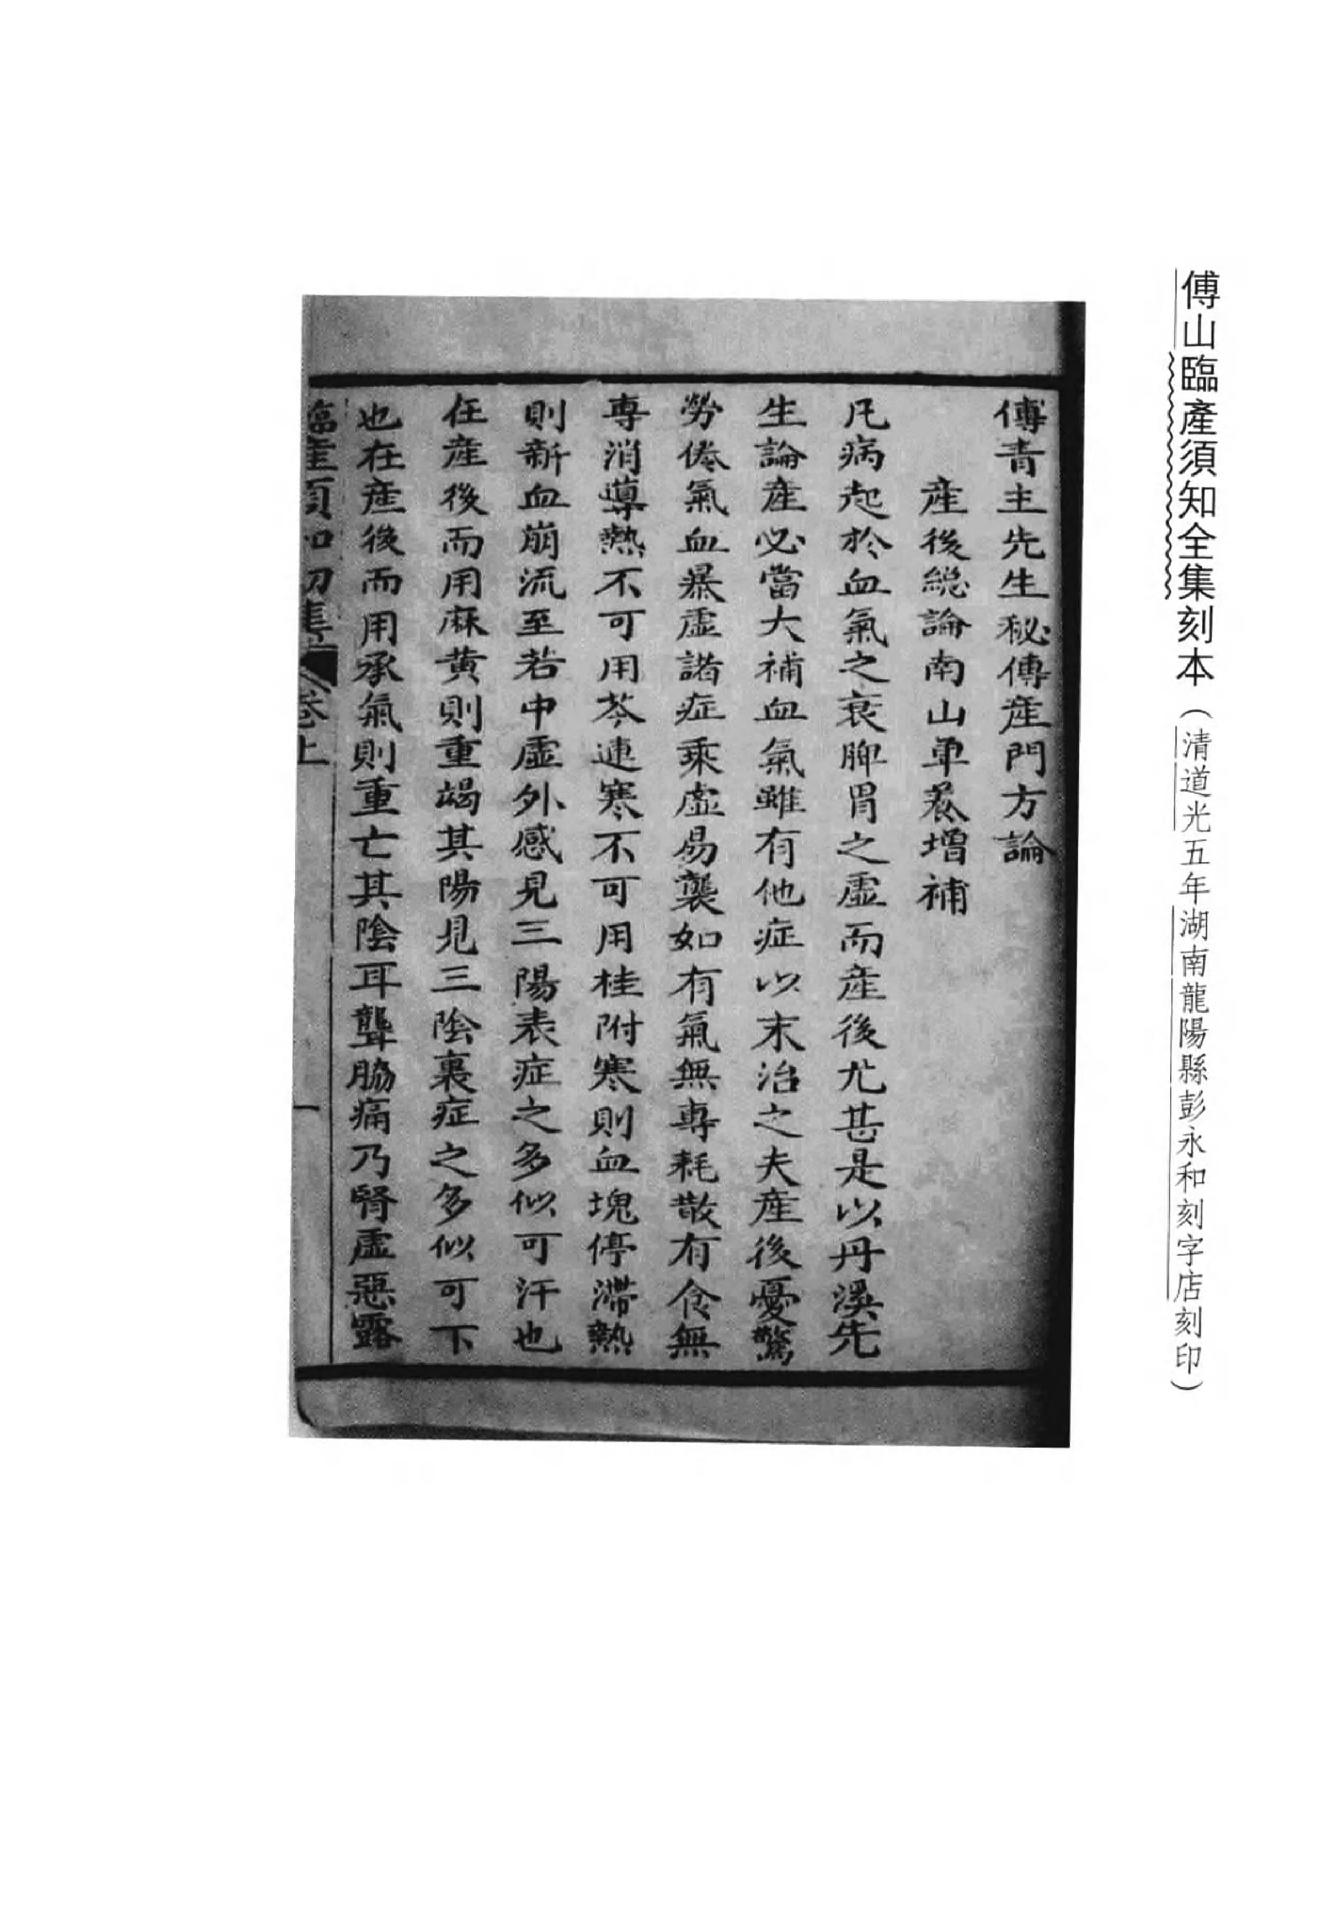 傅山臨產須知全集刻本（清道光五年湖南龍陽縣彭永和刻字店刻印）
傅青主先生秘傳産門方論
産後總論南山單養増補
凡病起於血氣之衰脾胃之虛而産後尤甚是以丹溪先
生論産必當大補血氣雖有他症以末治之夫産後憂驚
勞倦氣血暴虛諸症乘虛易襲如有氣無專耗散有食無
專消導熱不可用芩連寒不可用桂附寒則血塊停滯熱
則新血崩流至若中虛外感見三陽表症之多似可汗也
在産後而用麻黄則重竭其陽見三陰裏症之多似可下
也在産後而用承氣則重亡其陰耳聾脇痛乃腎虛惡露
臨産須知初集 卷上 一